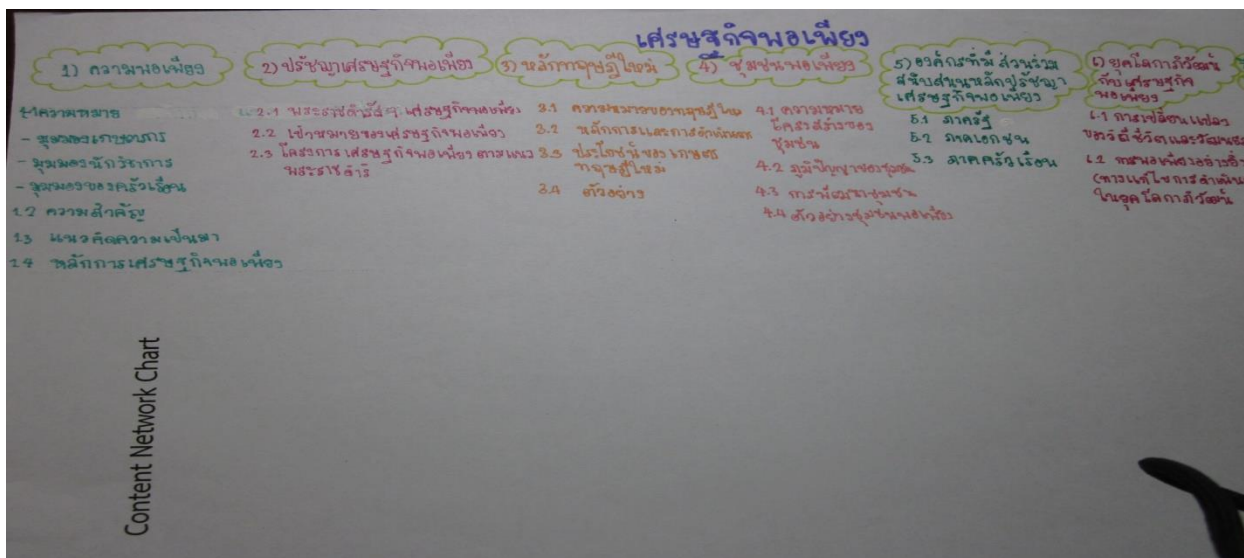 เศรษฐกิจพอเพียง
1) ความพอเพียง
1.1 ความหมาย
- มุมมองเกษตรกร
- มุมมองนักวิชาการ
- มุมมองของครัวเรือน
1.2 ความสำคัญ
1.3 แนวคิดความเป็นมา
1.4 หลักการเศรษฐกิจพอเพียง
2) ปรัชญาเศรษฐกิจพอเพียง
2.1 พระราชดำรัสฯ เศรษฐกิจพอเพียง
2.2 เป้าหมายของเศรษฐกิจพอเพียง
2.3 โครงการเศรษฐกิจพอเพียงตามแนว
พระราชดำริ
3) หลักทฤษฎีใหม่
3.1 ความหมายของทฤษฎีใหม่
3.2 หลักการและการดำเนินงาน
3.3 ประโยชน์ของเกษตร
ทฤษฎีใหม่
3.4 ตัวอย่าง
4) ชุมชนพอเพียง
4.1 ความหมาย
โครงสร้างของ
ชุมชน
4.2 ภูมิปัญญาของชุมชน
4.3 การพัฒนาชุมชน
4.4 ตัวอย่างชุมชนพอเพียง
5) องค์กรที่มีส่วนร่วม
สนับสนุนหลักปรัชญา
เศรษฐกิจพอเพียง
5.1 ภาครัฐ
5.2 ภาคเอกชน
5.3 ภาคครัวเรือน
6) ยุคโลกาภิวัฒน์
กับเศรษฐกิจ
พอเพียง
6.1 การเปลี่ยนแปลง
ของวิถีชีวิตและวัฒนธร
6.2 การพอเพียงอย่างยั่
(ทางแก้ไขการดำเนิน
ในยุคโลกาภิวัฒน์
Content Network Chart